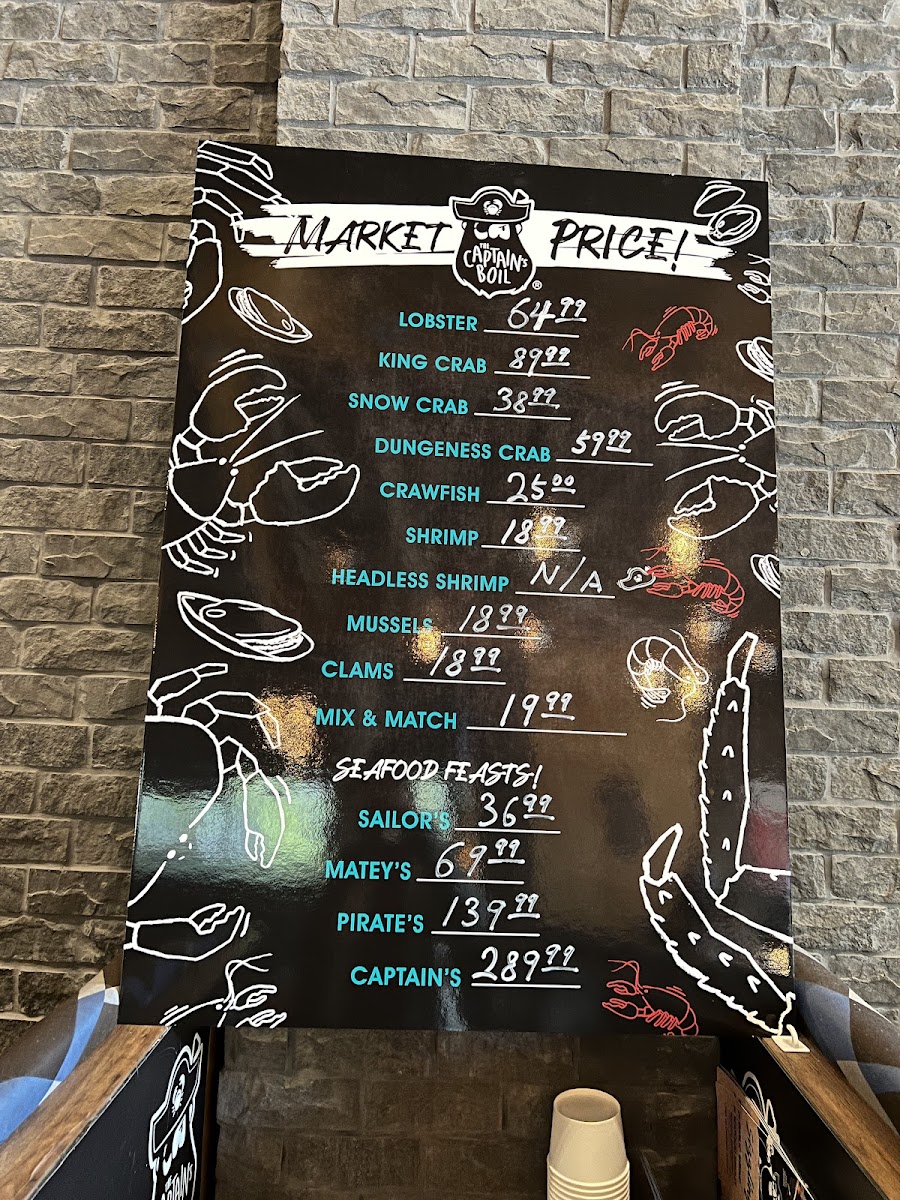 MARKET PRICE!
THE CAPTAIN'S BOIL ®
LOBSTER 64.99
KING CRAB 89.99
SNOW CRAB 38.99
DUNGENESS CRAB 59.99
CRAWFISH 25.00
SHRIMP 18.99
HEADLESS SHRIMP N/A
MUSSELS 18.99
CLAMS 18.99
MIX & MATCH 19.99
SEAFOOD FEASTS!
SAILOR'S 36.99
MATEY'S 69.99
PIRATE'S 139.99
CAPTAIN'S 289.99
THE
CAPTAIN'S